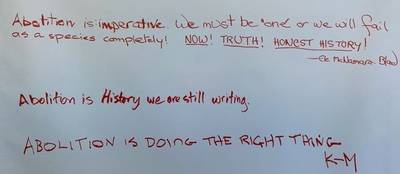 Abolition is imperative. We must be "one" or we will fail
as a species completely! NOW! TRUTH! HONEST HISTORY!
McNamara
Abolition is History we are still writing.
ABOLITION IS DOING THE RIGHT THING
K-M